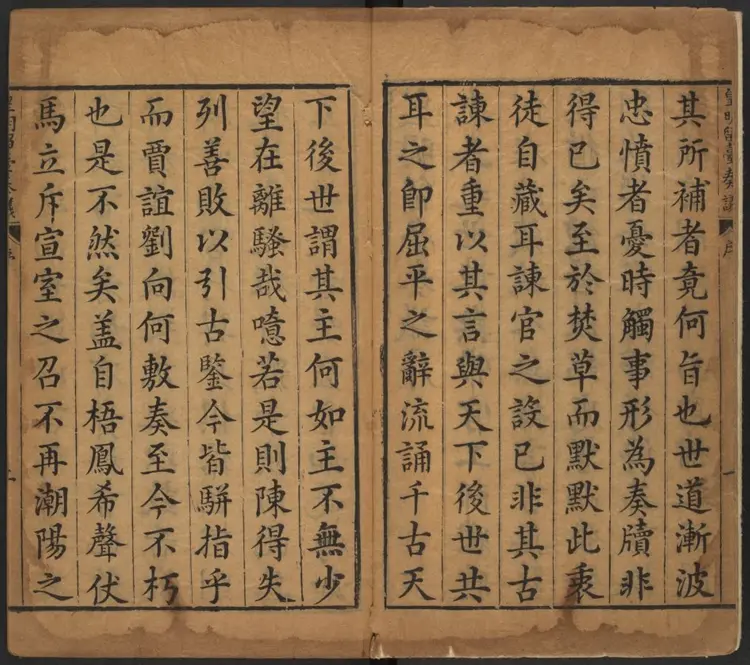 皇明留臺奏議 序 一
其所補者竟何旨也世道漸波
忠憤者憂時觸事形為奏牘非
得已矣至於焚草而默默此衷
徒自藏耳諫官之設已非其古
諫者重以其言與天下後世共
耳之卽屈平之辭流誦千古天
下後世謂其主何如主不無少
望在離騷哉噫若是則陳得失
列善敗以引古鑒今皆駢指乎
而賈誼劉向何敷奏至今不朽
也是不然矣盖自梧鳳希聲伏
馬立斥宣室之召不再潮陽之